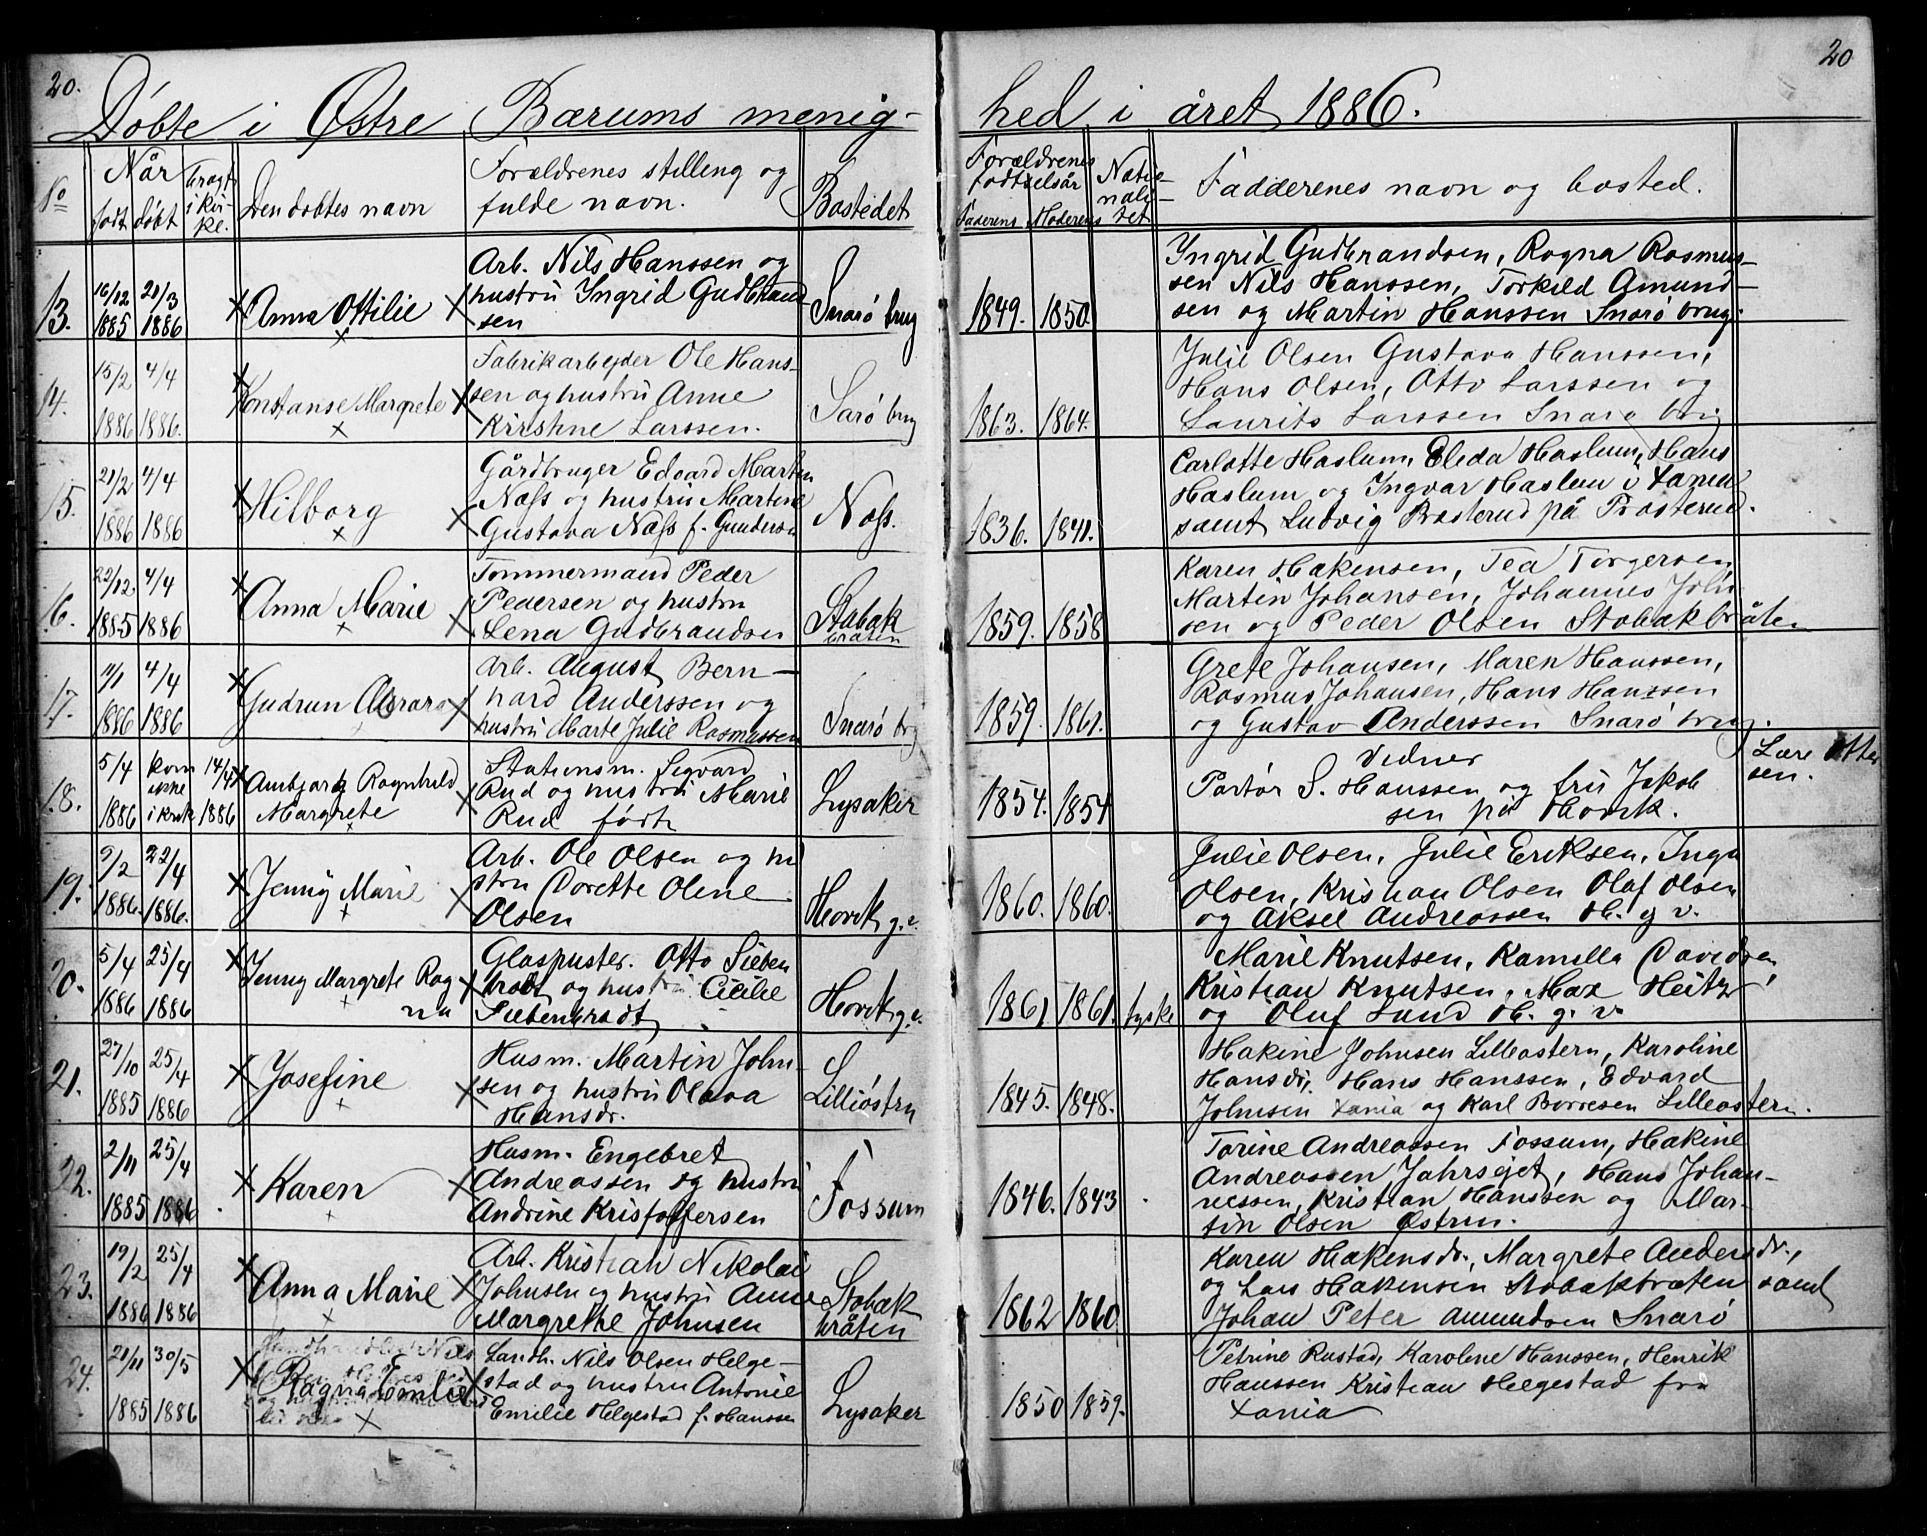 20.
20
Døbte i Østre Bærums menig-
hed i året 1886.
No
Når
født døbt
bragt i kirke.
Den døbtes navn
Forældrenes stilling og
fulde navn.
Bostedet
Forældrenes
fødselsår
Faderens Moderens
Natio-
nali-
tet
Fadderenes navn og bosted.
13.
16/12 1885
21/3 1886
Anna Ottilie
Arb. Nils Hanssen og
hustru Ingrid Gudbrand
sen
Snarø brug
1849. 1850.
Ingrid Gudbrandsen, Ragna Rasmus-
sen Nils Hanssen, Torkild Amund-
sen og Martin Hanssen Snarø brug.
14.
15/2 1886
4/4 1886.
Konstanse Margrete
Fabrikarbejder Ole Hans-
sen og hustru Anne
Kirstine Larssen.
Sarø brug
1863. 1864.
Julie Olsen Gustava Hanssen,
Hans Olsen, Otto Larssen og
Laurits Larssen Snarø brug
15.
21/2 1886
4/4 1886
Hilborg
Gårdbruger Edvard Martin
Næss og hustru Martine
Gustava Næss f. Gundersen
Næss.
1836. 1841.
Carlotte Haslum, Elida Haslum, Hans
Haslum og Ingvar Haslum i Xania
samt Ludvig Prosterud på Prosterud.
16.
22/12 1885
4/4 1886
Anna Marie
Tømmermand Peder
Pedersen og hustru
Lena Gudbrandsen
Stabæk
bråten
1859. 1858
Karen Hakensen, Tea Torgersen
Martin Johansen, Johannes John
sen og Peder Olsen Stabækbråten
17.
11/1 1886
4/4 1886
Gudrun Aurora
Arb. August Bern-
hard Anderssen og
hustru Marte Julie Rasmussen
Snarø brg
1859. 1861.
Grete Johansen, Maren Hanssen,
Rasmus Johansen, Hans Hanssen
og Gustav Anderssen Snarø brug.
18.
5/4 1886
kom ikke i kirk
14/4 1886
Ambjørg Ragnhild
Margrete
Stationsm. Sigvard
Rud og hustru Marie
Rud født
Lysaker
1854. 1854
Vidner
Portør S. Hanssen og fru Jakob
sen på Høvik.
Lære Otter
sen.
19.
9/2 1886
22/4 1886.
Jenny Marie
Arb. Ole Olsen og hu
stru Dorette Oline
Olsen
Høvik g.v.
1860. 1860.
Julie Olsen, Julie Eriksen, Inga
Olsen, Kristian Olsen Olaf Olsen
og Aksel Andreassen H. g. v.
20.
5/4 1886
25/4 1886
Jenny Margrete Rag
na
Glaspuster. Otto Sieben
brodt og hustru Cicilie
Siebenbrodt
Høvik g.v.
1861 1861. tyske
Marie Knutsen, Kamilla Davidsen,
Kristian Knutsen, Max Heitz
og Oluf Lund H. g. v.
21.
27/10 1885
25/4 1886
Josefine
Husm. Martin John-
sen og hustru Olava
Hansdr.
Lilliøstrn
1845. 1848.
Hakine Johnsen Lilleøstern, Karoline
Hansdr, Hans Hanssen, Edvard
Johnsen Xania og Karl Borresen Lilleøstern.
22.
2/11 1885
25/4 1886
Karen
Husm. Engebret
Andreassen og hustru
Andrine Kristoffersen
Fossum
1846. 1843
Torine Andreassen Fossum, Hakine
Andreassen Jahrsejet, Hans Johan-
nessen, Kristian Hanssen og Mar-
tin Olsen Østrn.
23.
19/2 1886
25/4 1886
Anna Marie
Arb. Kristian Nikolai
Johnsen og hustru Anne
Margrethe Johnsen
Stabæk
bråten
1862 1860
Karen Hakensdr., Margrete Andersdr.,
og Lars Hakensen Stabækbråten samt
Johan Peter Amundsen Snarø
24.
21/11 1885
30/5 1886
Ragna Emilie
Landh. Nils Olsen Helge-
stad og hustru Antonie
Emilie Helgestad f. Hanssen
Lysaker
1850 1859.
Petrine Rustad, Karoline Hanssen, Henrik
Hanssen Kristian Helgestad fra
Xania